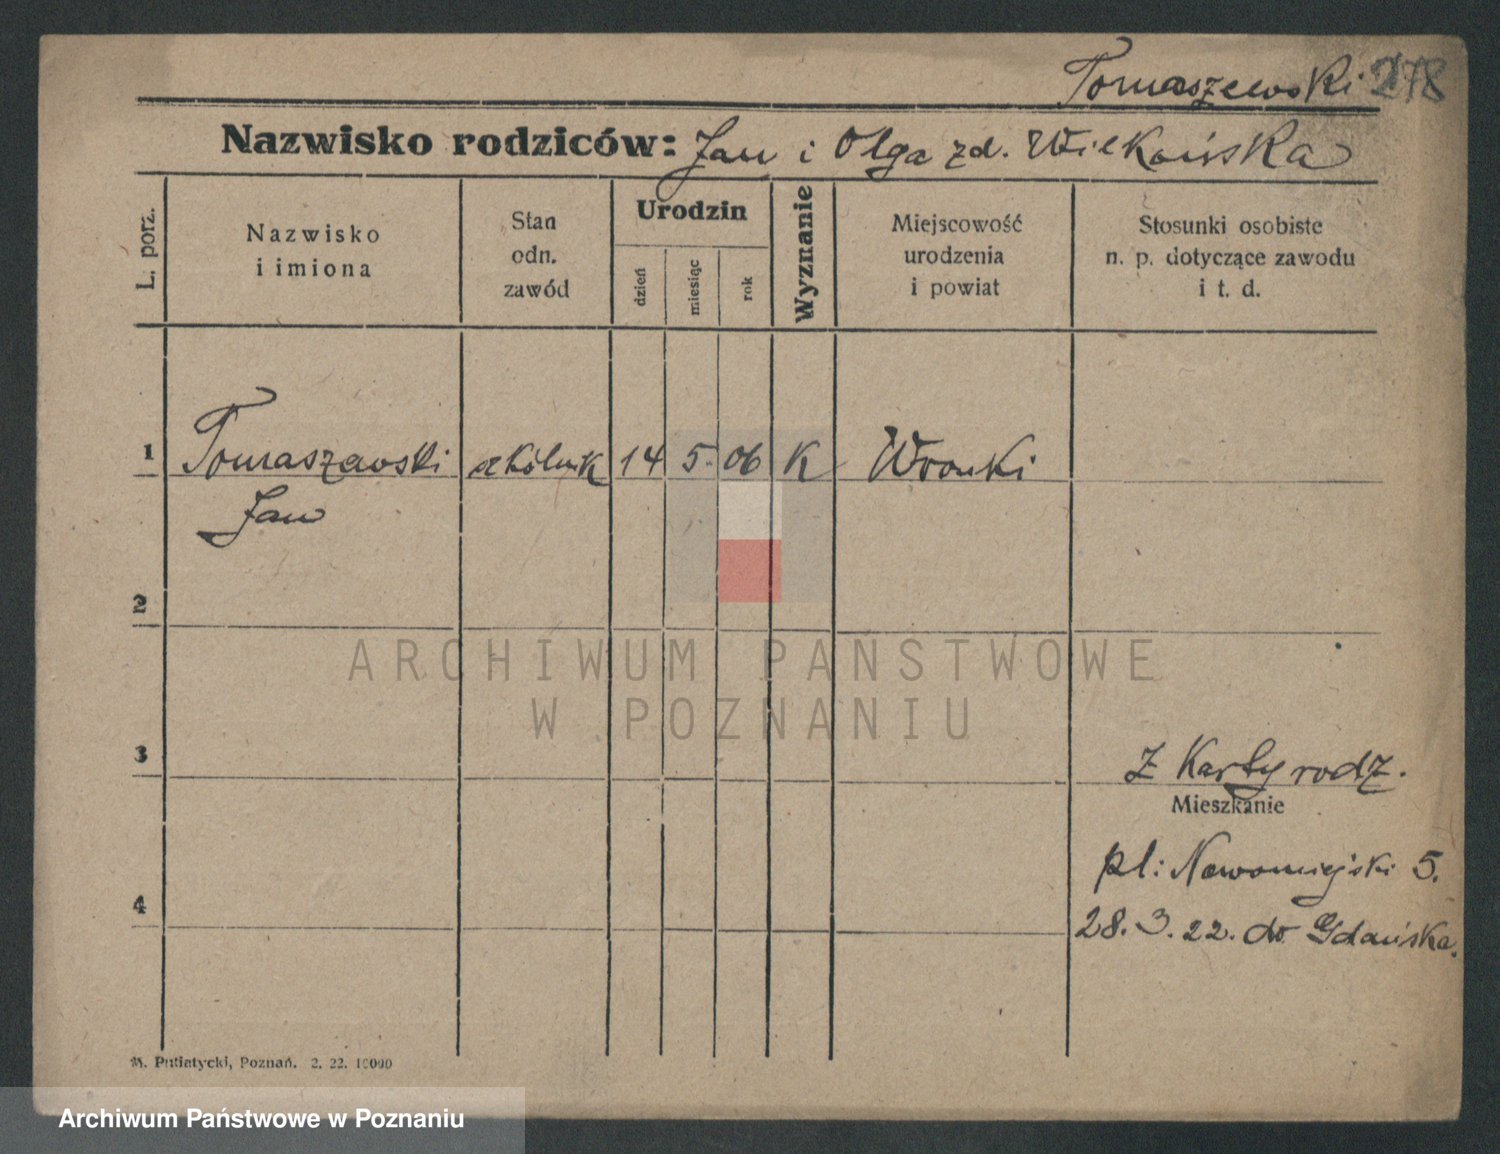 Tomaszewski 278
Nazwisko rodziców: Jan i Olga zd. Wilkońska
L. porz.
Nazwisko
i imiona
Stan
odn.
zawód
Urodzin
dzień
miesiąc
rok
Wyznanie
Miejscowość
urodzenia
i powiat
Stosunki osobiste
n. p. dotyczące zawodu
i t. d.
1 Tomaszewski szkólnik 14 5. 06 K Wronki
Jan
2
ARCHIWUM PAŃSTWOWE
W POZNANIU
3
Z Karty rodz.
Mieszkanie
pl: Nowomiejski 5.
4
28. 3. 22. do Gdańska.
M. Putiatycki, Poznań. 2. 22. 10000
Archiwum Państwowe w Poznaniu